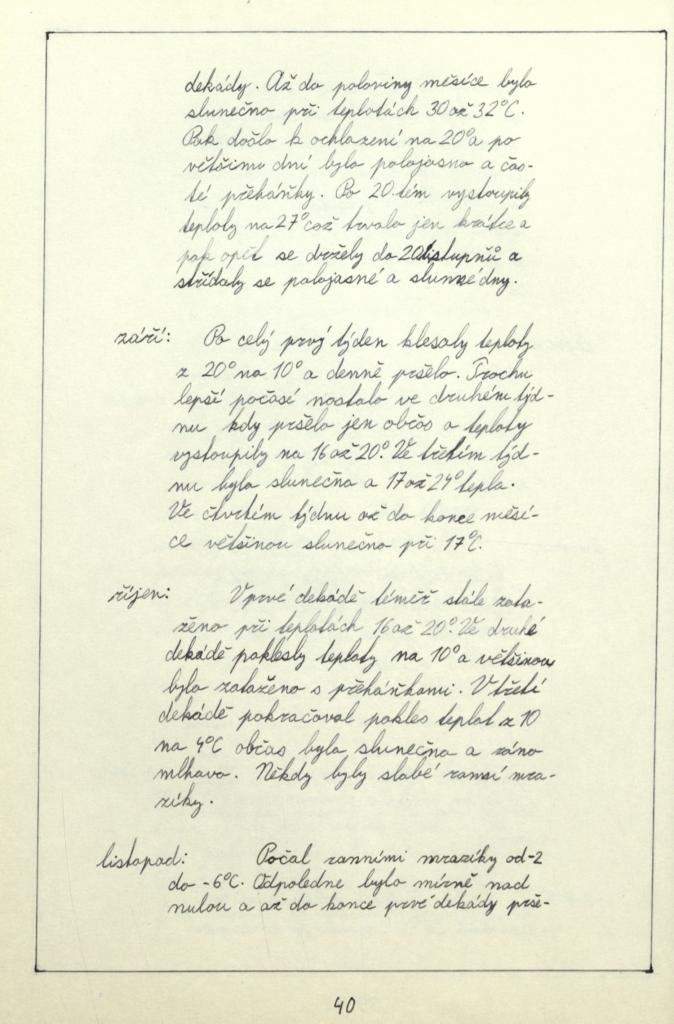 dekády. Až do poloviny měsíce bylo
slunečno při teplotách 30 až 32°C.
Pak došlo k ochlazení na 20° a po
většinu dní bylo polojasno a čas-
té přeháňky. Po 20.tém vystoupily
teploty na 27° což trvalo jen krátce a
pak opět se držely do 20ti stupňů a
střídaly se polojasné a slunné dny.
září: Po celý prvý týden klesaly teploty
z 20° na 10° a denně pršelo. Trochu
lepší počasí nastalo ve druhém týd-
nu kdy pršelo jen občas a teploty
vystoupily na 16 až 20°. Ve třetím týd-
nu bylo slunečno a 17 až 24° tepla.
Ve čtvrtém týdnu až do konce měsí-
ce většinou slunečno při 17°C.
říjen: V prvé dekádě téměř stále zata-
ženo při teplotách 16 až 20°. Ve druhé
dekádě poklesly teploty na 10° a většinou
bylo zataženo s přeháňkami. V třetí
dekádě pokračoval pokles teplot z 10
na 4°C občas bylo slunečno a ráno
mlhavo. Někdy byly slabé ranní mra-
zíky.
listopad: Počal ranními mrazíky od -2
do -6°C. Odpoledne bylo mírně nad
nulou a až do konce prvé dekády prše-
40